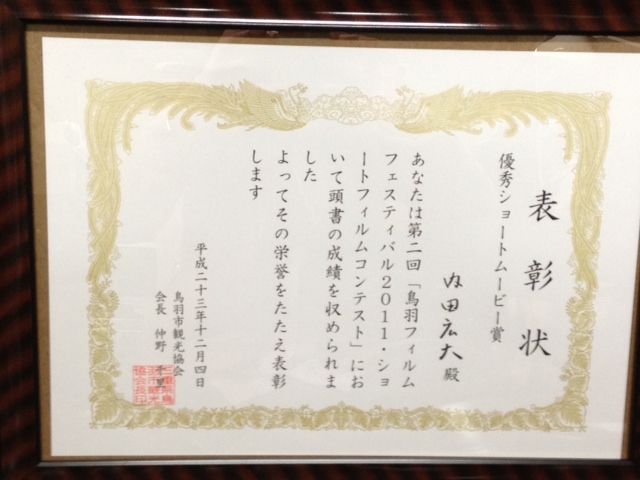 表彰状
優秀ショートムービー賞
内田広大 殿
あなたは第二回「鳥羽フィルム
フェスティバル2011・ショ
ートフィルムコンテスト」にお
いて頭書の成績を収められま
した
よってその栄誉をたたえ表彰
します
平成二十三年十二月四日
鳥羽市観光協会
会長 仲野 千里